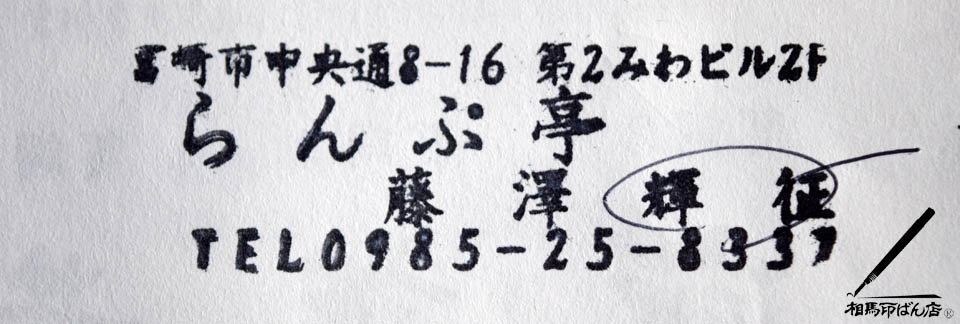 宮崎市中央通8-16 第2みわビル2F
らんぷ亭
藤澤輝征
TEL0985-25-8337
相馬印ばん店®